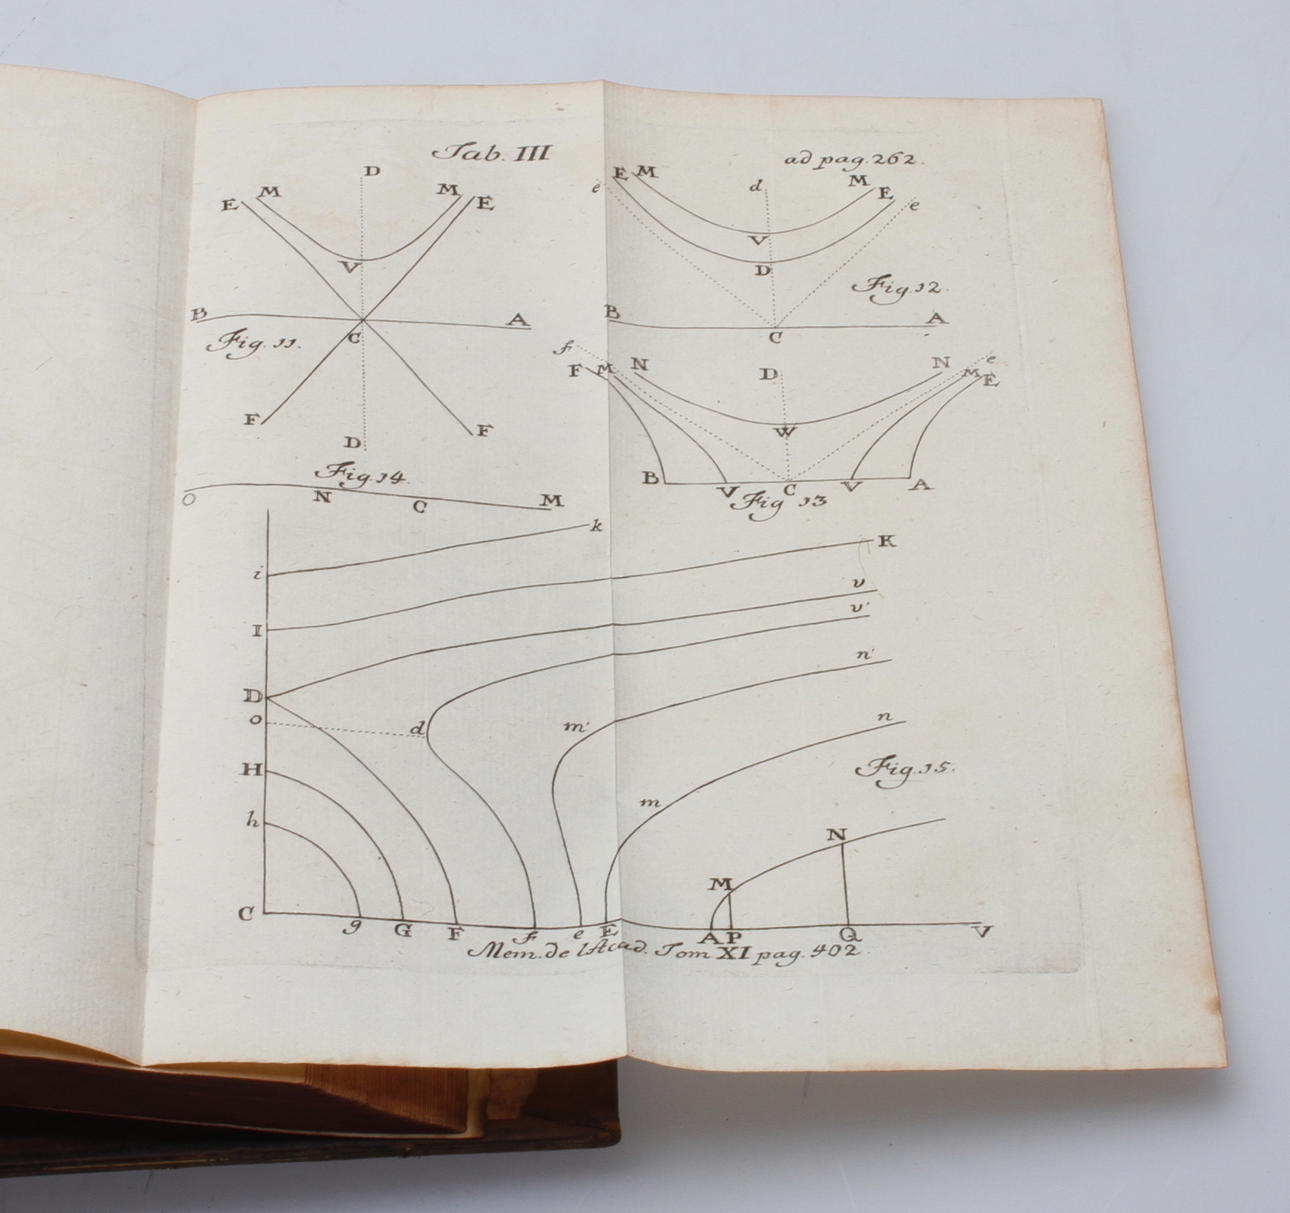 Tab. III
ad pag. 262.
D
E M M E
V
B A
C
Fig. 11.
F F
D
e E M d M E e
V
D
Fig. 12.
B A
C
f F M N D N M e E
W
B V C V A
Fig 13
Fig. 14.
O N C M
k
i
K
I
v
v'
D
n'
o d m'
n
H
m
Fig. 15.
h
N
M
C g G F f e E A P Q V
Mem. de l'Acad. Tom XI pag. 402.